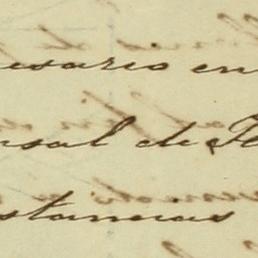 esario en
nsal de
stancias